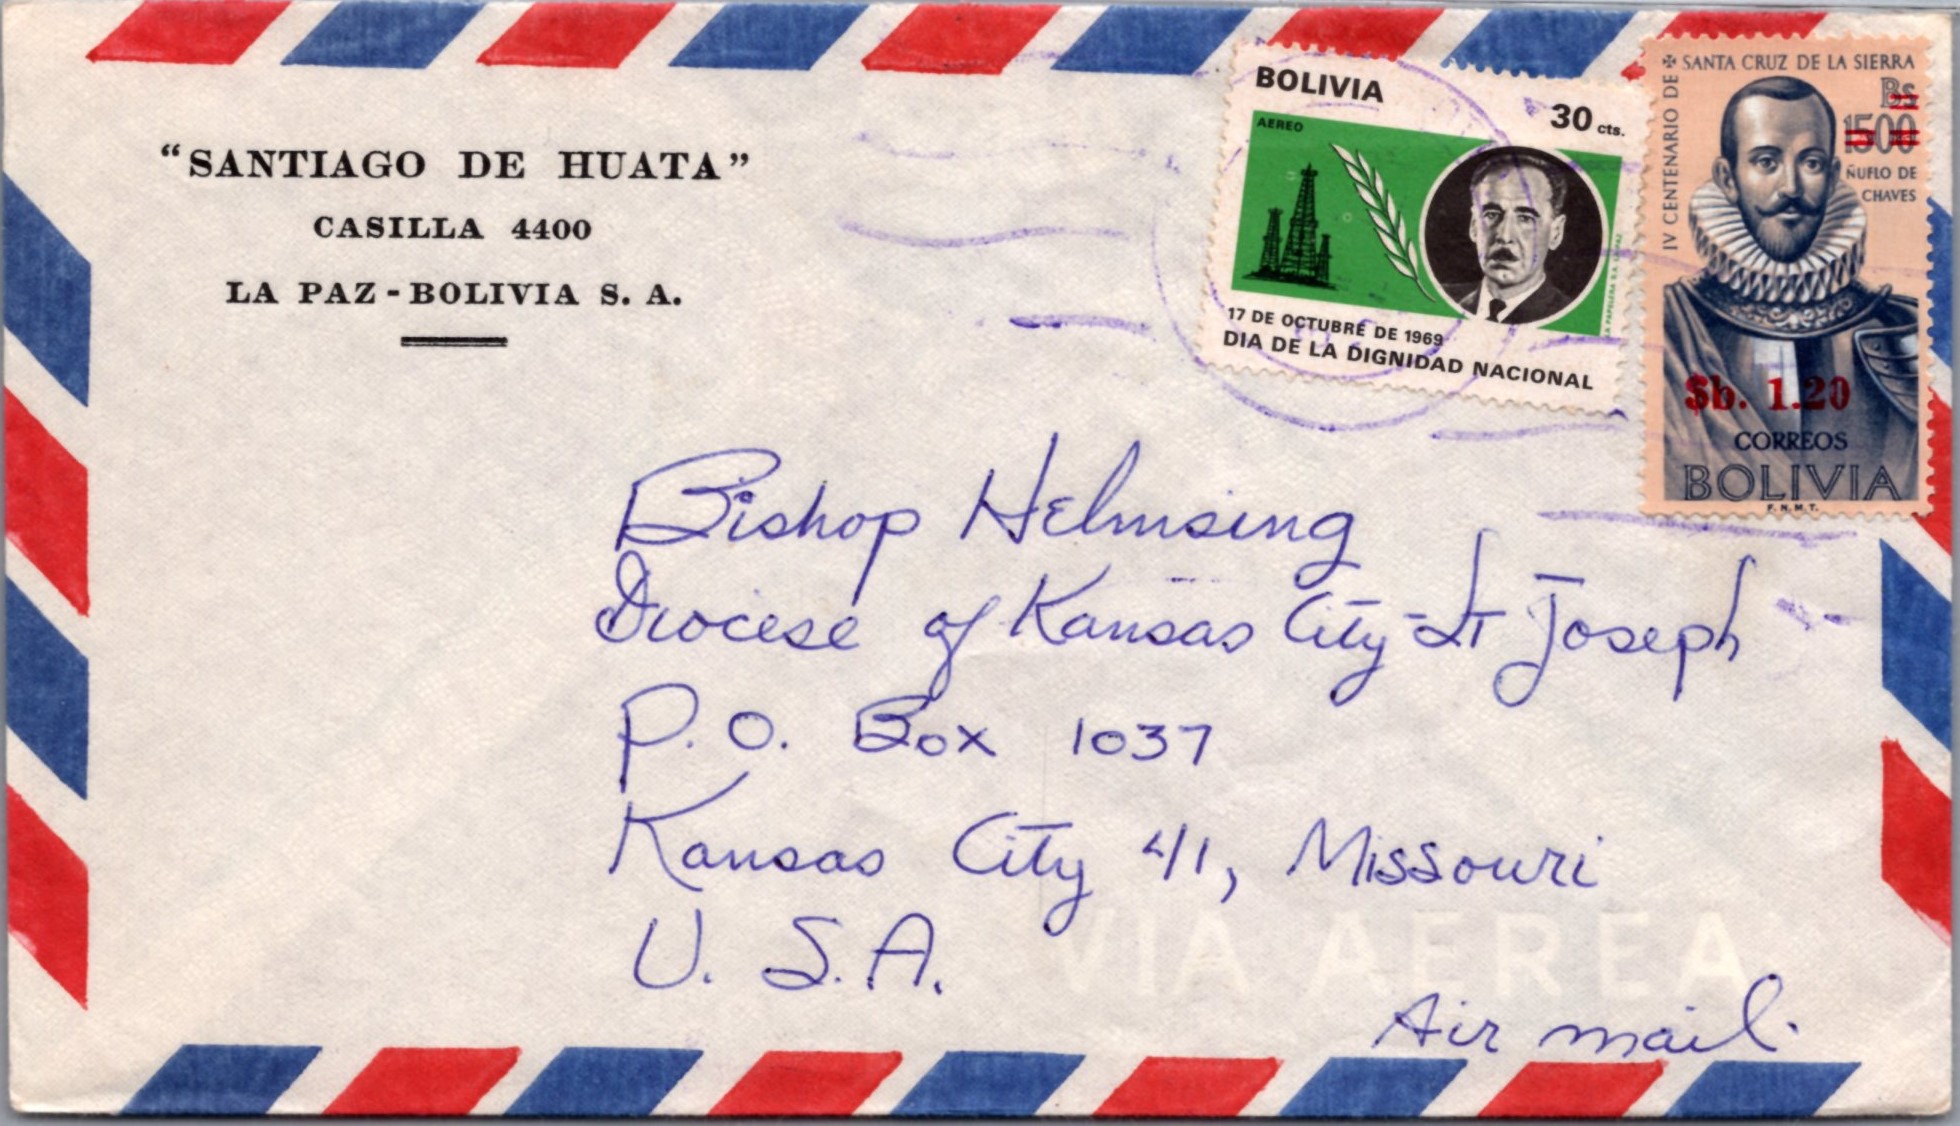 “SANTIAGO DE HUATA”
CASILLA 4400
LA PAZ - BOLIVIA S. A.
BOLIVIA
30 cts.
AEREO
LA PAPELERA S.A. LA PAZ
17 DE OCTUBRE DE 1969
DIA DE LA DIGNIDAD NACIONAL
IV CENTENARIO DE ✠ SANTA CRUZ DE LA SIERRA
Bs
1500
ÑUFLO DE
CHAVES
$b. 1.20
CORREOS
BOLIVIA
F.N.M.T.
Bishop Helmsing
Diocese of Kansas City-St Joseph
P.O. Box 1037
Kansas City 41, Missouri
U.S.A.
VIA AEREA
Air mail.